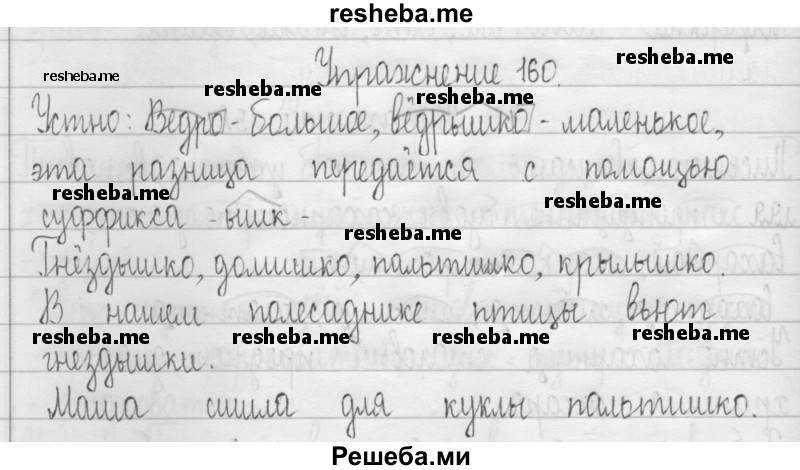 resheba.me
Упражнение 160.
resheba.me
resheba.me
resheba.me
resheba.me
Устно: Ведро - большое, вёдрышко - маленькое,
эта разница передаётся с помощью
resheba.me
resheba.me
суффикса - ышк -
resheba.me
Гнёздышко, домишко, пальтишко, крылышко.
В нашем полесаднике птицы вьют
resheba.me
resheba.me
resheba.me
resheba.me
гнёздышки.
Маша сшила для куклы пальтишко.
Решеба.ми